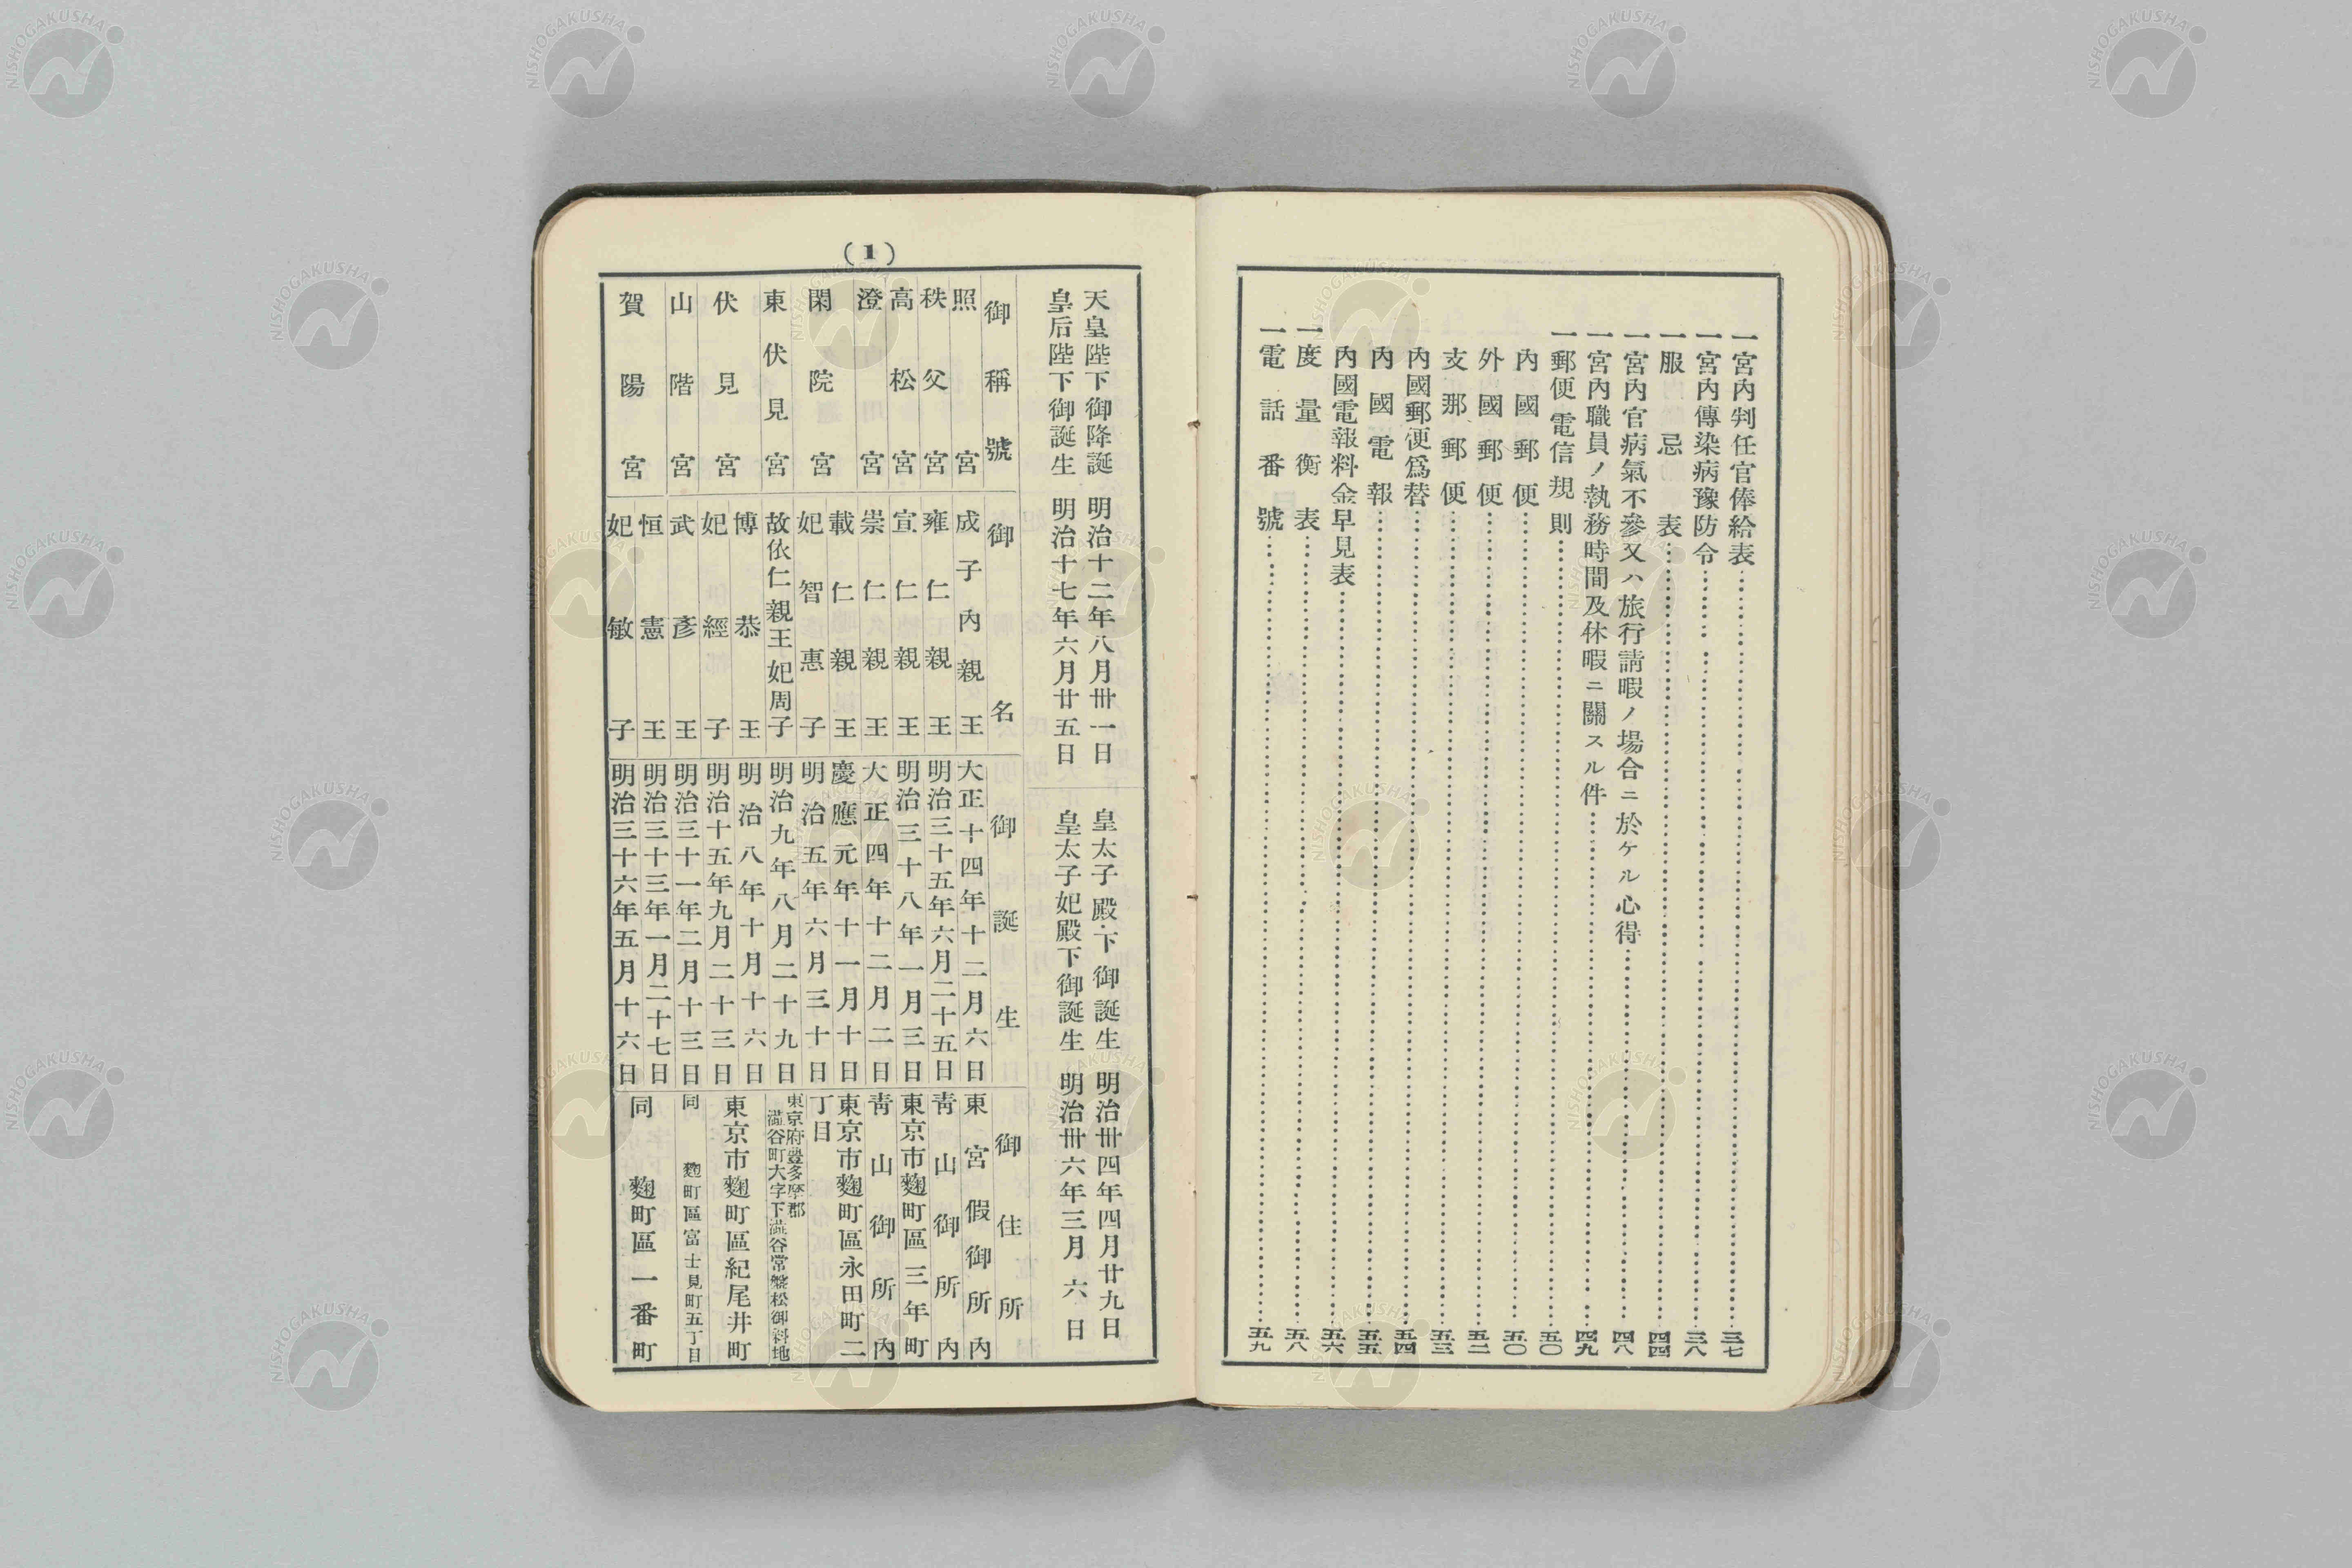 一宮內判任官俸給表 三七
一宮內傳染病豫防令 三八
一服忌表 四四
一宮內官病氣不參又ハ旅行請暇ノ場合ニ於ケル心得 四八
一宮內職員ノ執務時間及休暇ニ關スル件 四九
一郵便電信規則 五〇
內國郵便 五〇
外國郵便 五二
支那郵便 五三
內國郵便爲替 五四
內國電報 五五
內國電報料金早見表 五六
一度量衡表 五八
一電話番號 五九
(1)
天皇陛下御降誕 明治十二年八月卅一日
皇后陛下御誕生 明治十七年六月廿五日
皇太子殿下御誕生 明治卅四年四月廿九日
皇太子妃殿下御誕生 明治卅六年三月六日
御稱號 御名 御誕生 御住所
照宮 成子內親王 大正十四年十二月六日 東宮假御所內
秩父宮 雍仁親王 明治三十五年六月二十五日 靑山御所內
高松宮 宣仁親王 明治三十八年一月三日 東京市麴町區三年町
澄宮 崇仁親王 大正四年十二月二日 靑山御所內
閑院宮 載仁親王 慶應元年十一月十日 東京市麴町區永田町二
妃智惠子 明治五年六月三十日 丁目
東伏見宮 故依仁親王妃周子 明治九年八月二十九日 東京府豐多摩郡
澁谷町大字下澁谷常盤松御料地
伏見宮 博恭王 明治八年十月十六日 東京市麴町區紀尾井町
妃經子 明治十五年九月二十三日
山階宮 武彥王 明治三十一年二月十三日 同 麴町區富士見町五丁目
賀陽宮 恒憲王 明治三十三年一月二十七日 同 麴町區一番町
妃敏子 明治三十六年五月十六日
NISHOGAKUSHA